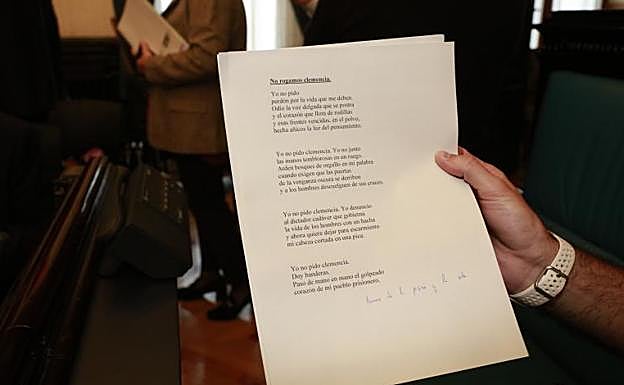 No rogamos clemencia.
Yo no pido
perdón por la vida que me deben.
Odio la voz delgada que se postra
y el corazón que llora de rodillas
y esas frentes vencidas, en el polvo,
hecha añicos la luz del pensamiento.
Yo no pido clemencia. Yo no junto
las manos temblorosas en un ruego.
Arden bosques de orgullo en mi palabra
cuando exigen que las puertas
de la venganza oscura se derriben
y a los hombres descuelguen de sus cruces.
Yo no pido clemencia. Yo denuncio
al dictador cadáver que gobierna
la vida de los hombres con un hacha
y ahora quiere dejar para escarmiento
mi cabeza cortada en una pica.
Yo no pido clemencia.
Doy banderas.
Paso de mano en mano el golpeado
corazón de mi pueblo prisionero.